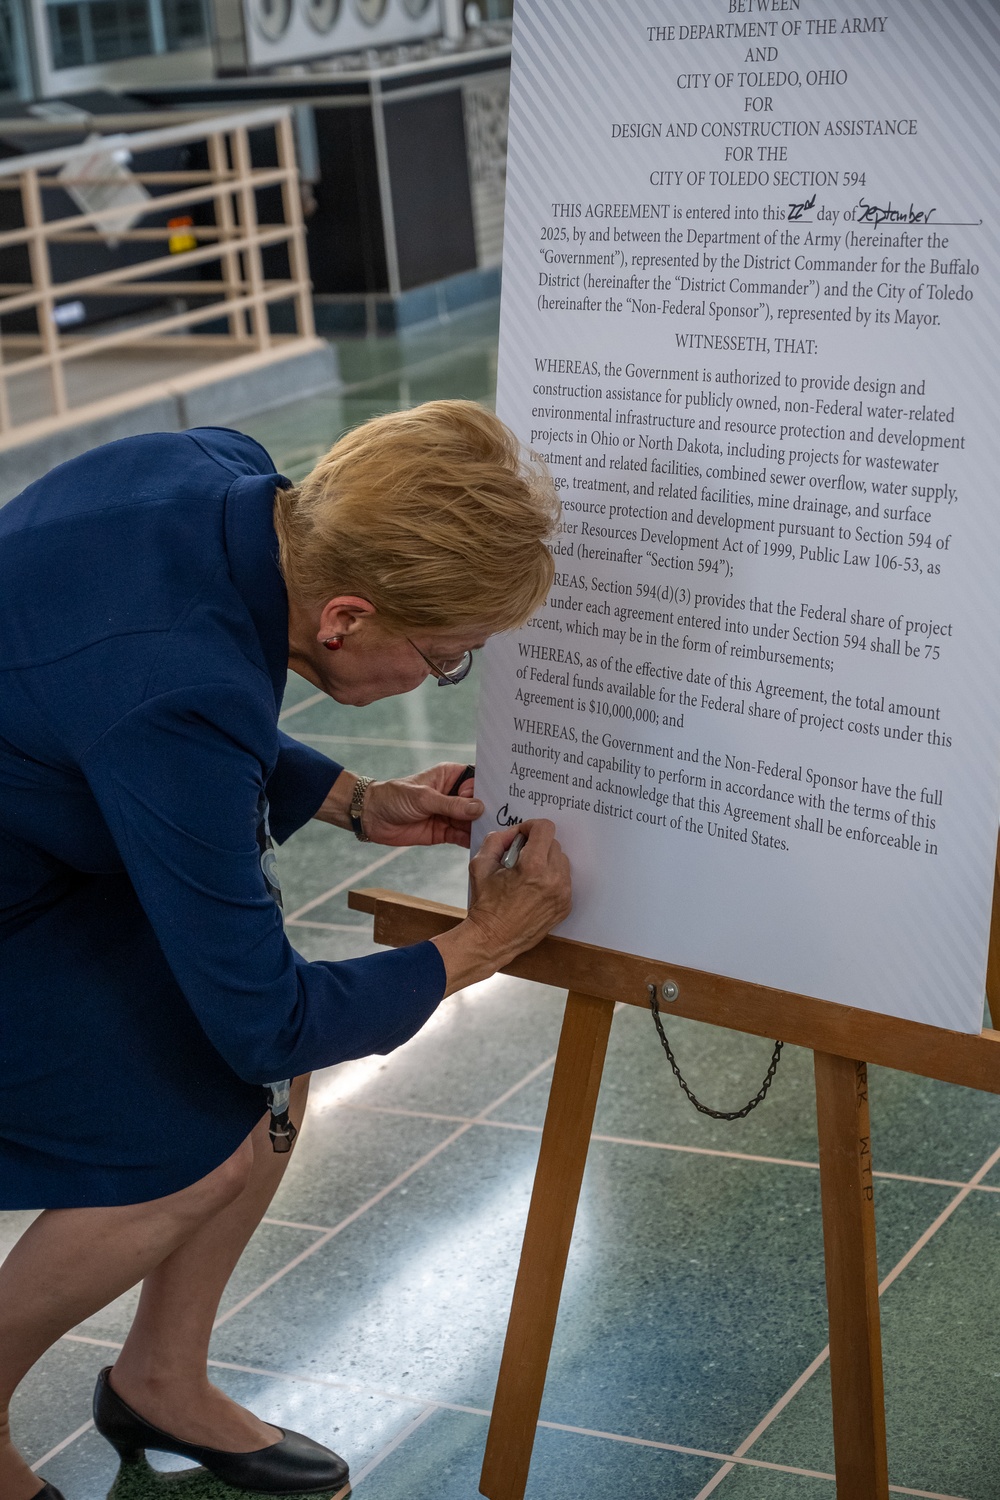 BETWEEN
THE DEPARTMENT OF THE ARMY
AND
CITY OF TOLEDO, OHIO
FOR
DESIGN AND CONSTRUCTION ASSISTANCE
FOR THE
CITY OF TOLEDO SECTION 594
THIS AGREEMENT is entered into this 22nd day of September,
2025, by and between the Department of the Army (hereinafter the
“Government”), represented by the District Commander for the Buffalo
District (hereinafter the “District Commander”) and the City of Toledo
(hereinafter the “Non-Federal Sponsor”), represented by its Mayor.
WITNESSETH, THAT:
WHEREAS, the Government is authorized to provide design and
construction assistance for publicly owned, non-Federal water-related
environmental infrastructure and resource protection and development
projects in Ohio or North Dakota, including projects for wastewater
treatment and related facilities, combined sewer overflow, water supply,
treatment, and related facilities, mine drainage, and surface
resource protection and development pursuant to Section 594 of
Resources Development Act of 1999, Public Law 106-53, as
(hereinafter “Section 594”);
Section 594(d)(3) provides that the Federal share of project
under each agreement entered into under Section 594 shall be 75
percent, which may be in the form of reimbursements;
WHEREAS, as of the effective date of this Agreement, the total amount
of Federal funds available for the Federal share of project costs under this
Agreement is $10,000,000; and
WHEREAS, the Government and the Non-Federal Sponsor have the full
authority and capability to perform in accordance with the terms of this
Agreement and acknowledge that this Agreement shall be enforceable in
the appropriate district court of the United States.
WTP